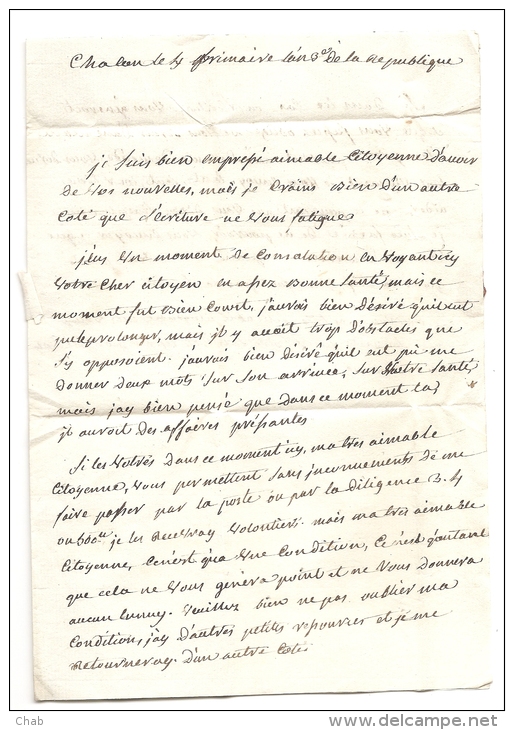 Chalon le 4 frimaire l'an 3e de la Republique
je suis bien empressé aimable Citoyenne d'avoir
de vos nouvelles, mais je crains bien d'un autre
coté que l'ecriture ne vous fatigue
j'eus un moment de Consolation en voyant icy
votre cher Citoyen en assez bonne santé, mais ce
moment fut bien court. j'aurois bien désiré qu'il eut
pu le prolonger, mais il y avoit trop d'obstacles que
s'y opposoient. j'aurois bien désiré qu'il eut pu me
donner deux mots sur son arrivée, sur votre santé,
mais j'ay bien pensé que dans ce moment la
il auroit des affaires préssantes
Si les votres dans ce moment icy, ma tres aimable
Citoyenne, vous permettent sans inconvenients de me
faire passer par la poste ou par la diligence 2. 4
ou 500ll je les recevray volontiers. mais ma tres aimable
Citoyenne, ce n'est qu'a une condition, c'est qu'autant
que cela ne vous genera point et ne vous donnera
aucun ennuy. veuillez bien ne pas oublier ma
condition, j'ay d'autres petites ressources et je me
retourneray. d'un autre coté
Chab
www.delcampe.net